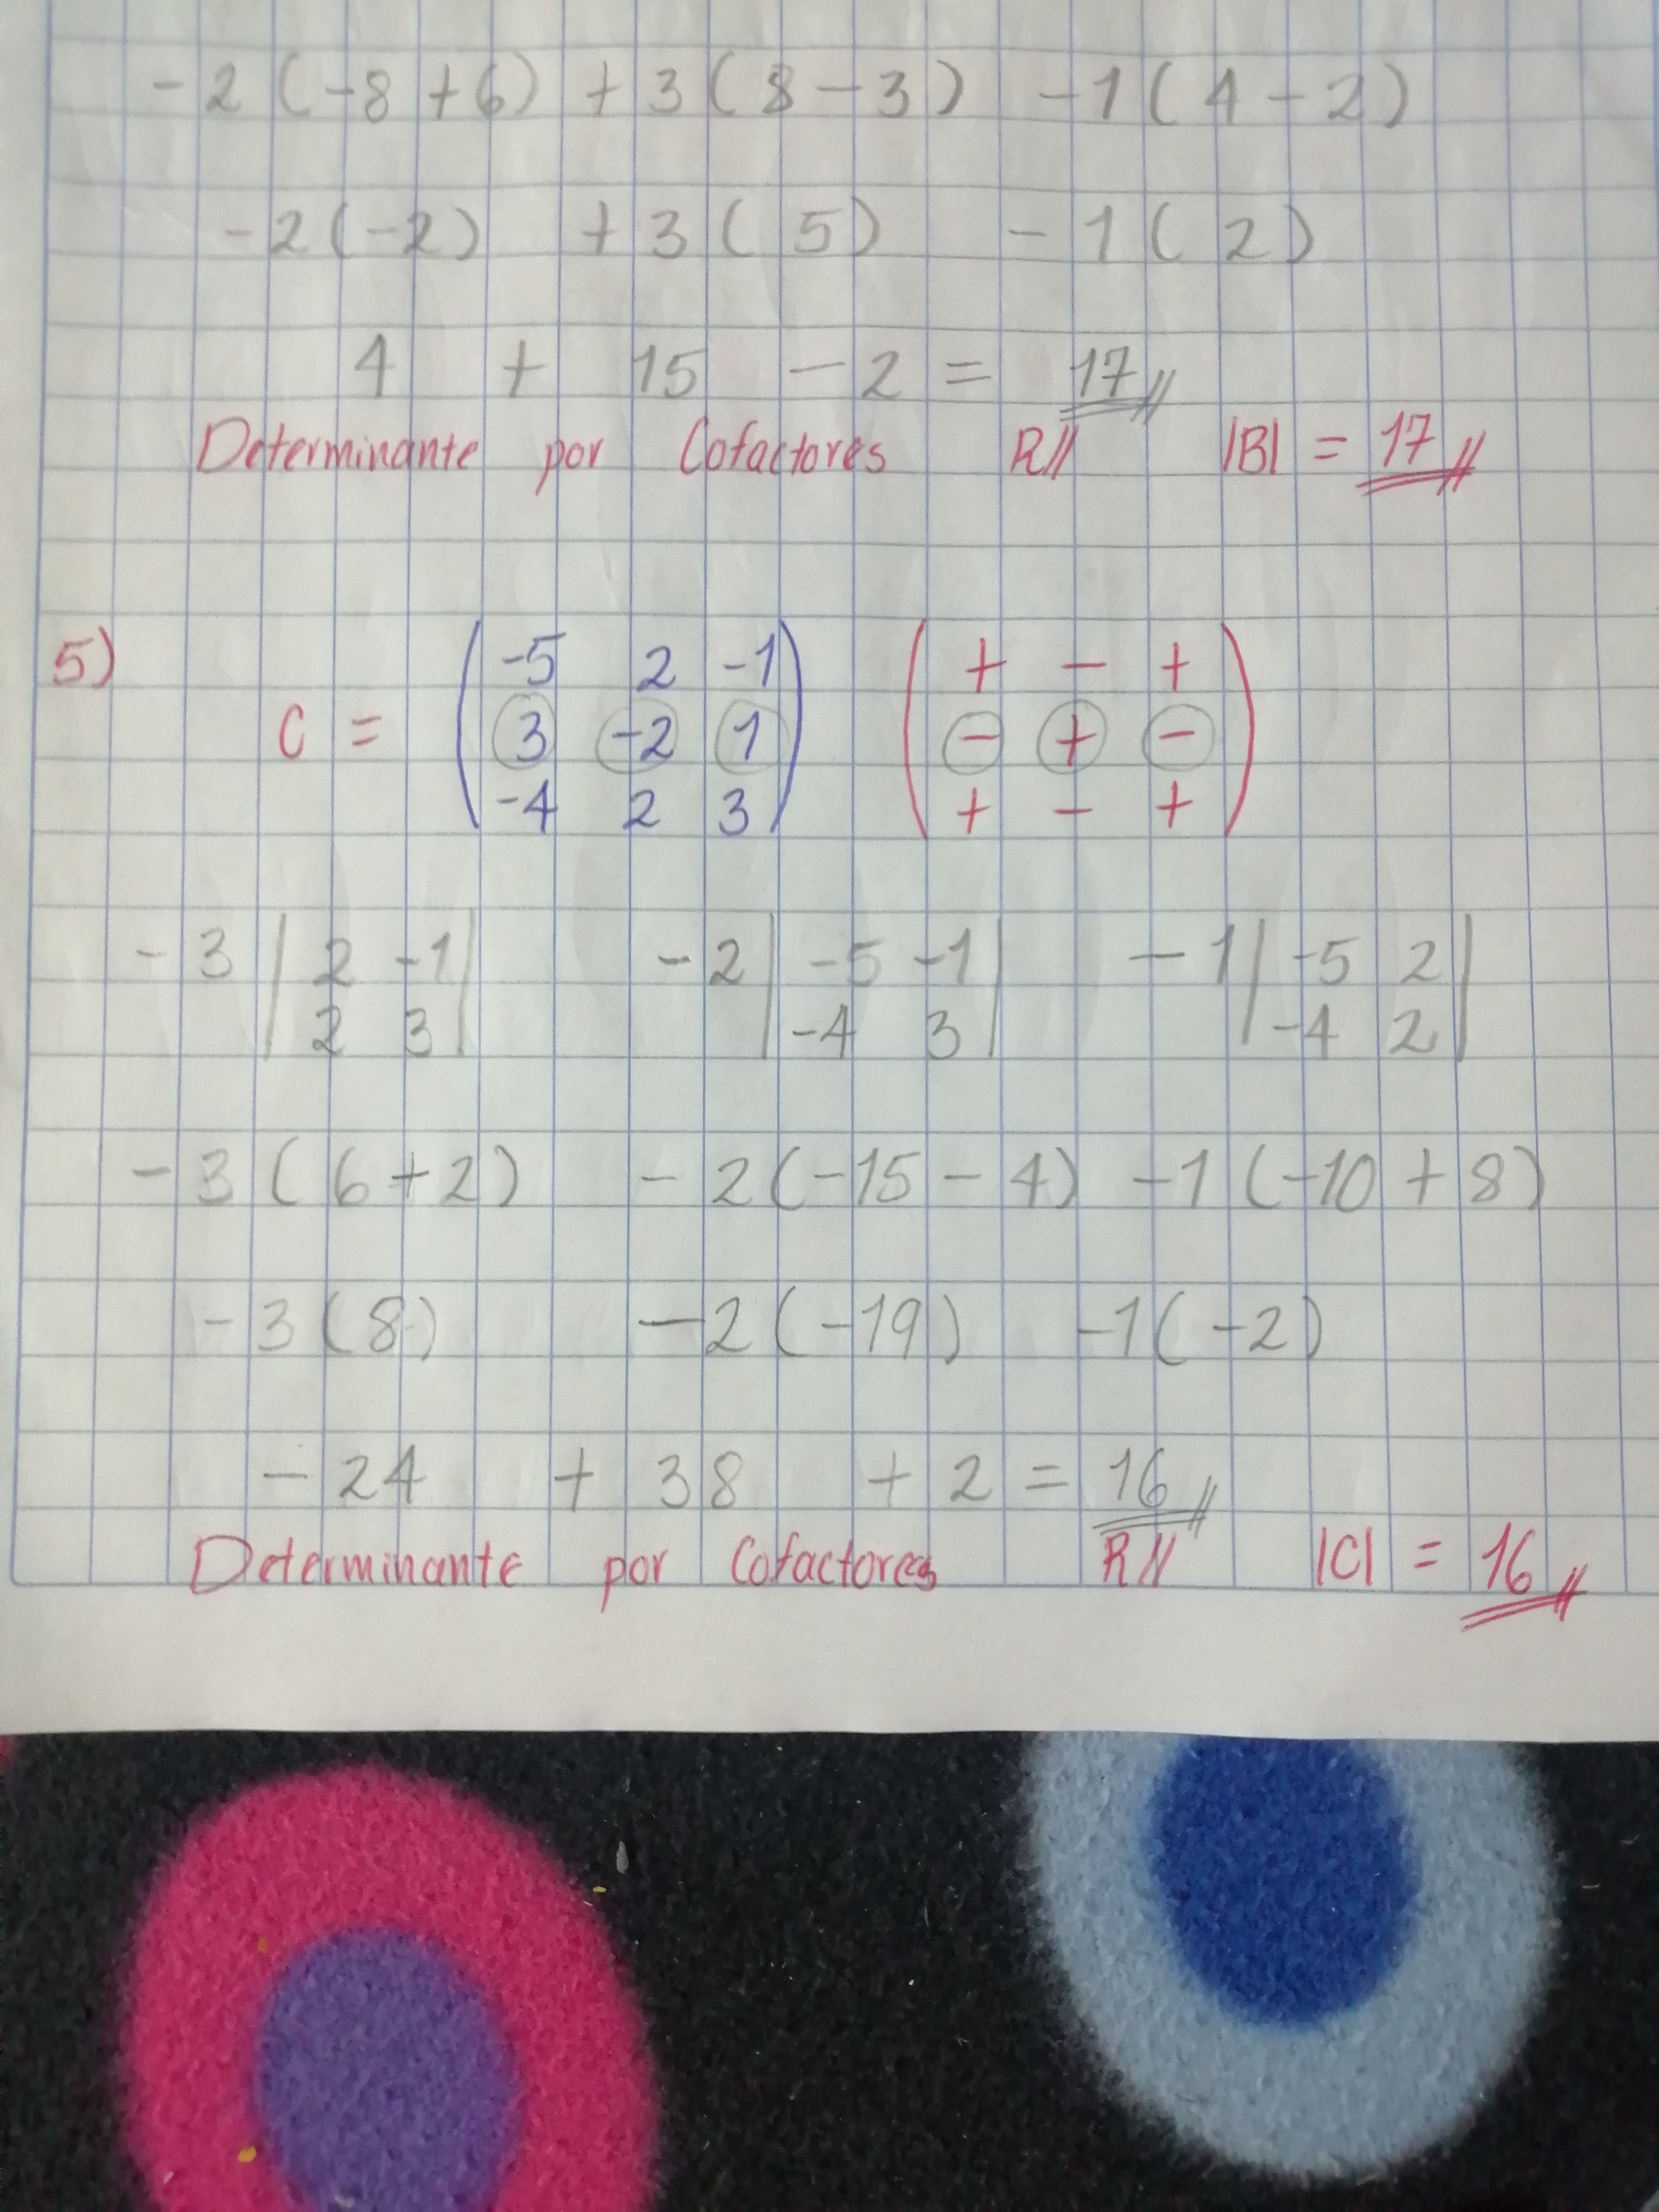 -2(-8+6) +3(8-3) -1(4-2)
-2(-2) +3(5) -1(2)
4 + 15 -2 = 17//
Determinante por Cofactores R// |B| = 17//
5)
-5 2 -1 + - +
C = 3 -2 1 - + -
-4 2 3 + - +
-3 | 2 -1 | -2 | -5 -1 | -1 | -5 2 |
| 2 3 | | -4 3 | | -4 2 |
-3(6+2) -2(-15-4) -1(-10+8)
-3(8) -2(-19) -1(-2)
-24 + 38 + 2 = 16//
Determinante por Cofactores R// |C| = 16//